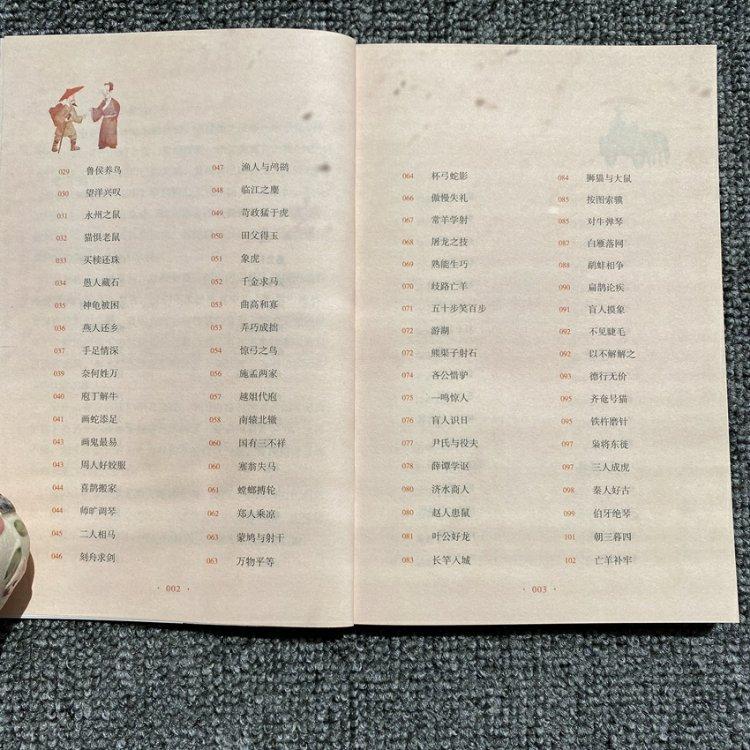 029 鲁侯养鸟
030 望洋兴叹
031 永州之鼠
032 猫惧老鼠
033 买椟还珠
034 愚人藏石
035 神龟被困
036 燕人还乡
037 手足情深
039 奈何姓万
040 庖丁解牛
041 画蛇添足
043 画鬼最易
043 周人好姣服
044 喜鹊搬家
044 师旷调琴
045 二人相马
046 刻舟求剑
047 渔人与鸬鹚
048 临江之麋
049 苛政猛于虎
050 田父得玉
051 象虎
052 千金求马
053 曲高和寡
053 弄巧成拙
054 惊弓之鸟
056 施孟两家
057 越俎代庖
058 南辕北辙
060 国有三不祥
060 塞翁失马
061 螳螂搏轮
062 郑人乘凉
063 蒙鸠与射干
063 万物平等
· 002 ·
064 杯弓蛇影
066 傲慢失礼
067 常羊学射
068 屠龙之技
069 熟能生巧
070 歧路亡羊
071 五十步笑百步
072 游湖
072 熊渠子射石
074 吝公惜驴
075 一鸣惊人
076 盲人识日
077 尹氏与役夫
078 薛谭学讴
080 济水商人
080 赵人患鼠
081 叶公好龙
083 长竿入城
084 狮猫与大鼠
085 按图索骥
085 对牛弹琴
087 白雁落网
088 鹬蚌相争
090 扁鹊论疾
091 盲人摸象
092 不见睫毛
092 以不解解之
093 德行无价
095 齐奄号猫
095 铁杵磨针
097 枭将东徙
097 三人成虎
098 秦人好古
099 伯牙绝琴
101 朝三暮四
102 亡羊补牢
· 003 ·